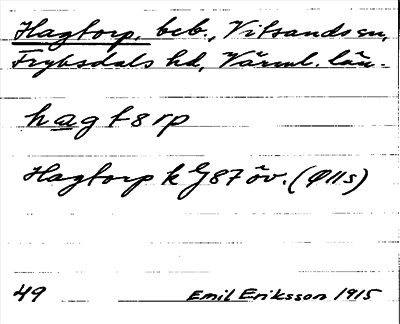 Hagtorp, beb., Vitsands sn,
Fryksdals hd, Värml. län.
hagtorp
Hagtorp k G87 öv. (Ølls)
49 Emil Eriksson 1915